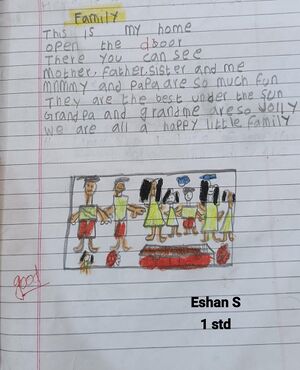 Family
This is my home
open the door
There you can see
Mother, Father, sister and me
Mummy and Papa are so much fun
They are the best under the sun
Grandpa and grandme are so Jolly
We are all a happy little family
good
Eshan S
1 std